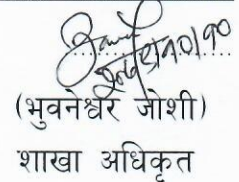 (भुवनेश्वर जोशी)
शाखा अधिकृत